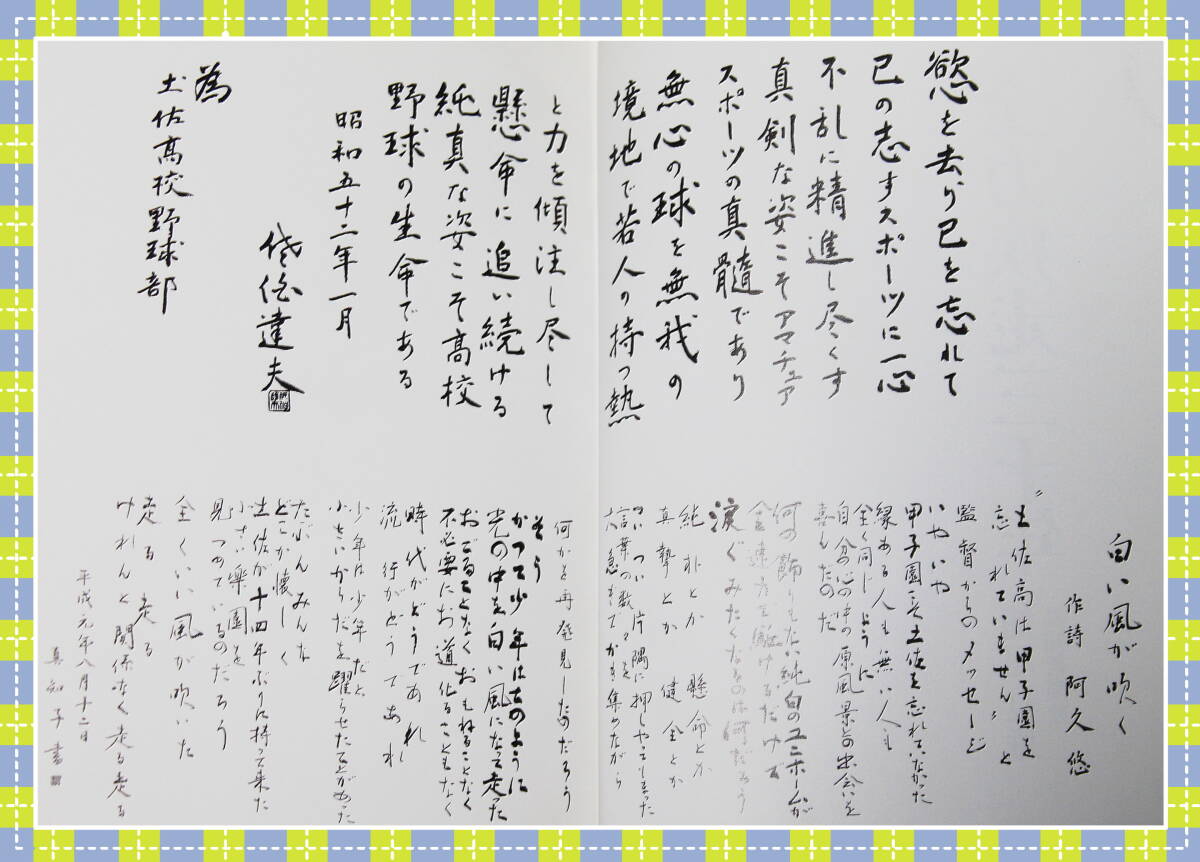 慾を去り己を忘れて
己の志すスポーツに一心
不乱に精進し尽くす
真剣な姿こそアマチュア
スポーツの真髄であり
無心の球を無我の
境地で若人の持つ熱
と力を傾注し尽して
懸命に追い続ける
純真な姿こそ高校
野球の生命である
昭和五十二年一月
達夫
為
土佐高校野球部
白い風が吹く
作詩 阿久悠
〝土佐高は甲子園を
忘れていません〟と
監督からのメッセージ
いやいや
甲子園こそ土佐を忘れていなかった
縁ある人も無い人も
全く同じように
自分の心の中の原風景との出会いを
喜んだのだ
何の飾りもない純白のユニホームが
全速力で駆けるだけで
涙ぐみたくなるのは何だろう
純朴とか 懸命とか
真摯とか 健全とか
つい片隅に押しやってしまった
言葉の数々を
大急ぎでかき集めながら
何かを再発見したのだろう
そう
かつて少年はこのように
光の中を白い風になって走った
おごることなく おもねることなく
不必要にお道化ることもなく
時代がどうであれ
流行がどうであれ
少年は少年だと
小さいからだを躍らせたことがあった
たぶんみんな
どこか懐しく
土佐が十四年ぶりに持って来た
小さい楽園を
見つめているのだろう
全くいい風が吹いた
走る 走る
けれんと関係なく走る走る
平成元年八月十二日
真知子書